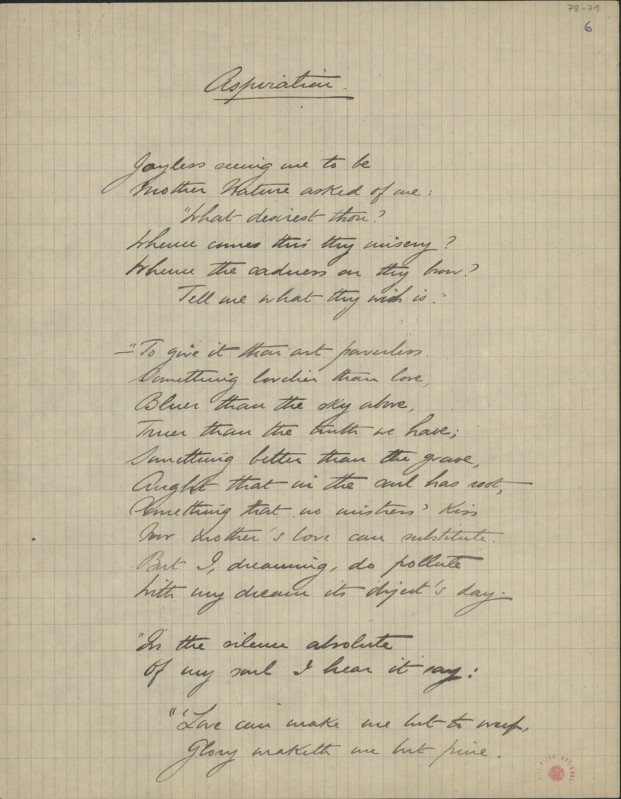 78-71
6
Aspiration.
Joyless seeing me to be
Mother Nature asked of me:
"What desirest thou?
Whence comes this thy misery?
Whence the sadness on thy brow?
Tell me what thy wish is."
—"To give it thou art powerless.
Something lovelier than love,
Bluer than the sky above,
Truer than the truth we have;
Something better than the grave,
Aught that in the soul has root,
Something that no mistress' kiss
Nor mother's love can substitute.
But I, dreaming, do pollute
With my dream its object's day.
"In the silence absolute
Of my soul I hear it say:
"'Love can make me but to weep,
Glory maketh me but pine.